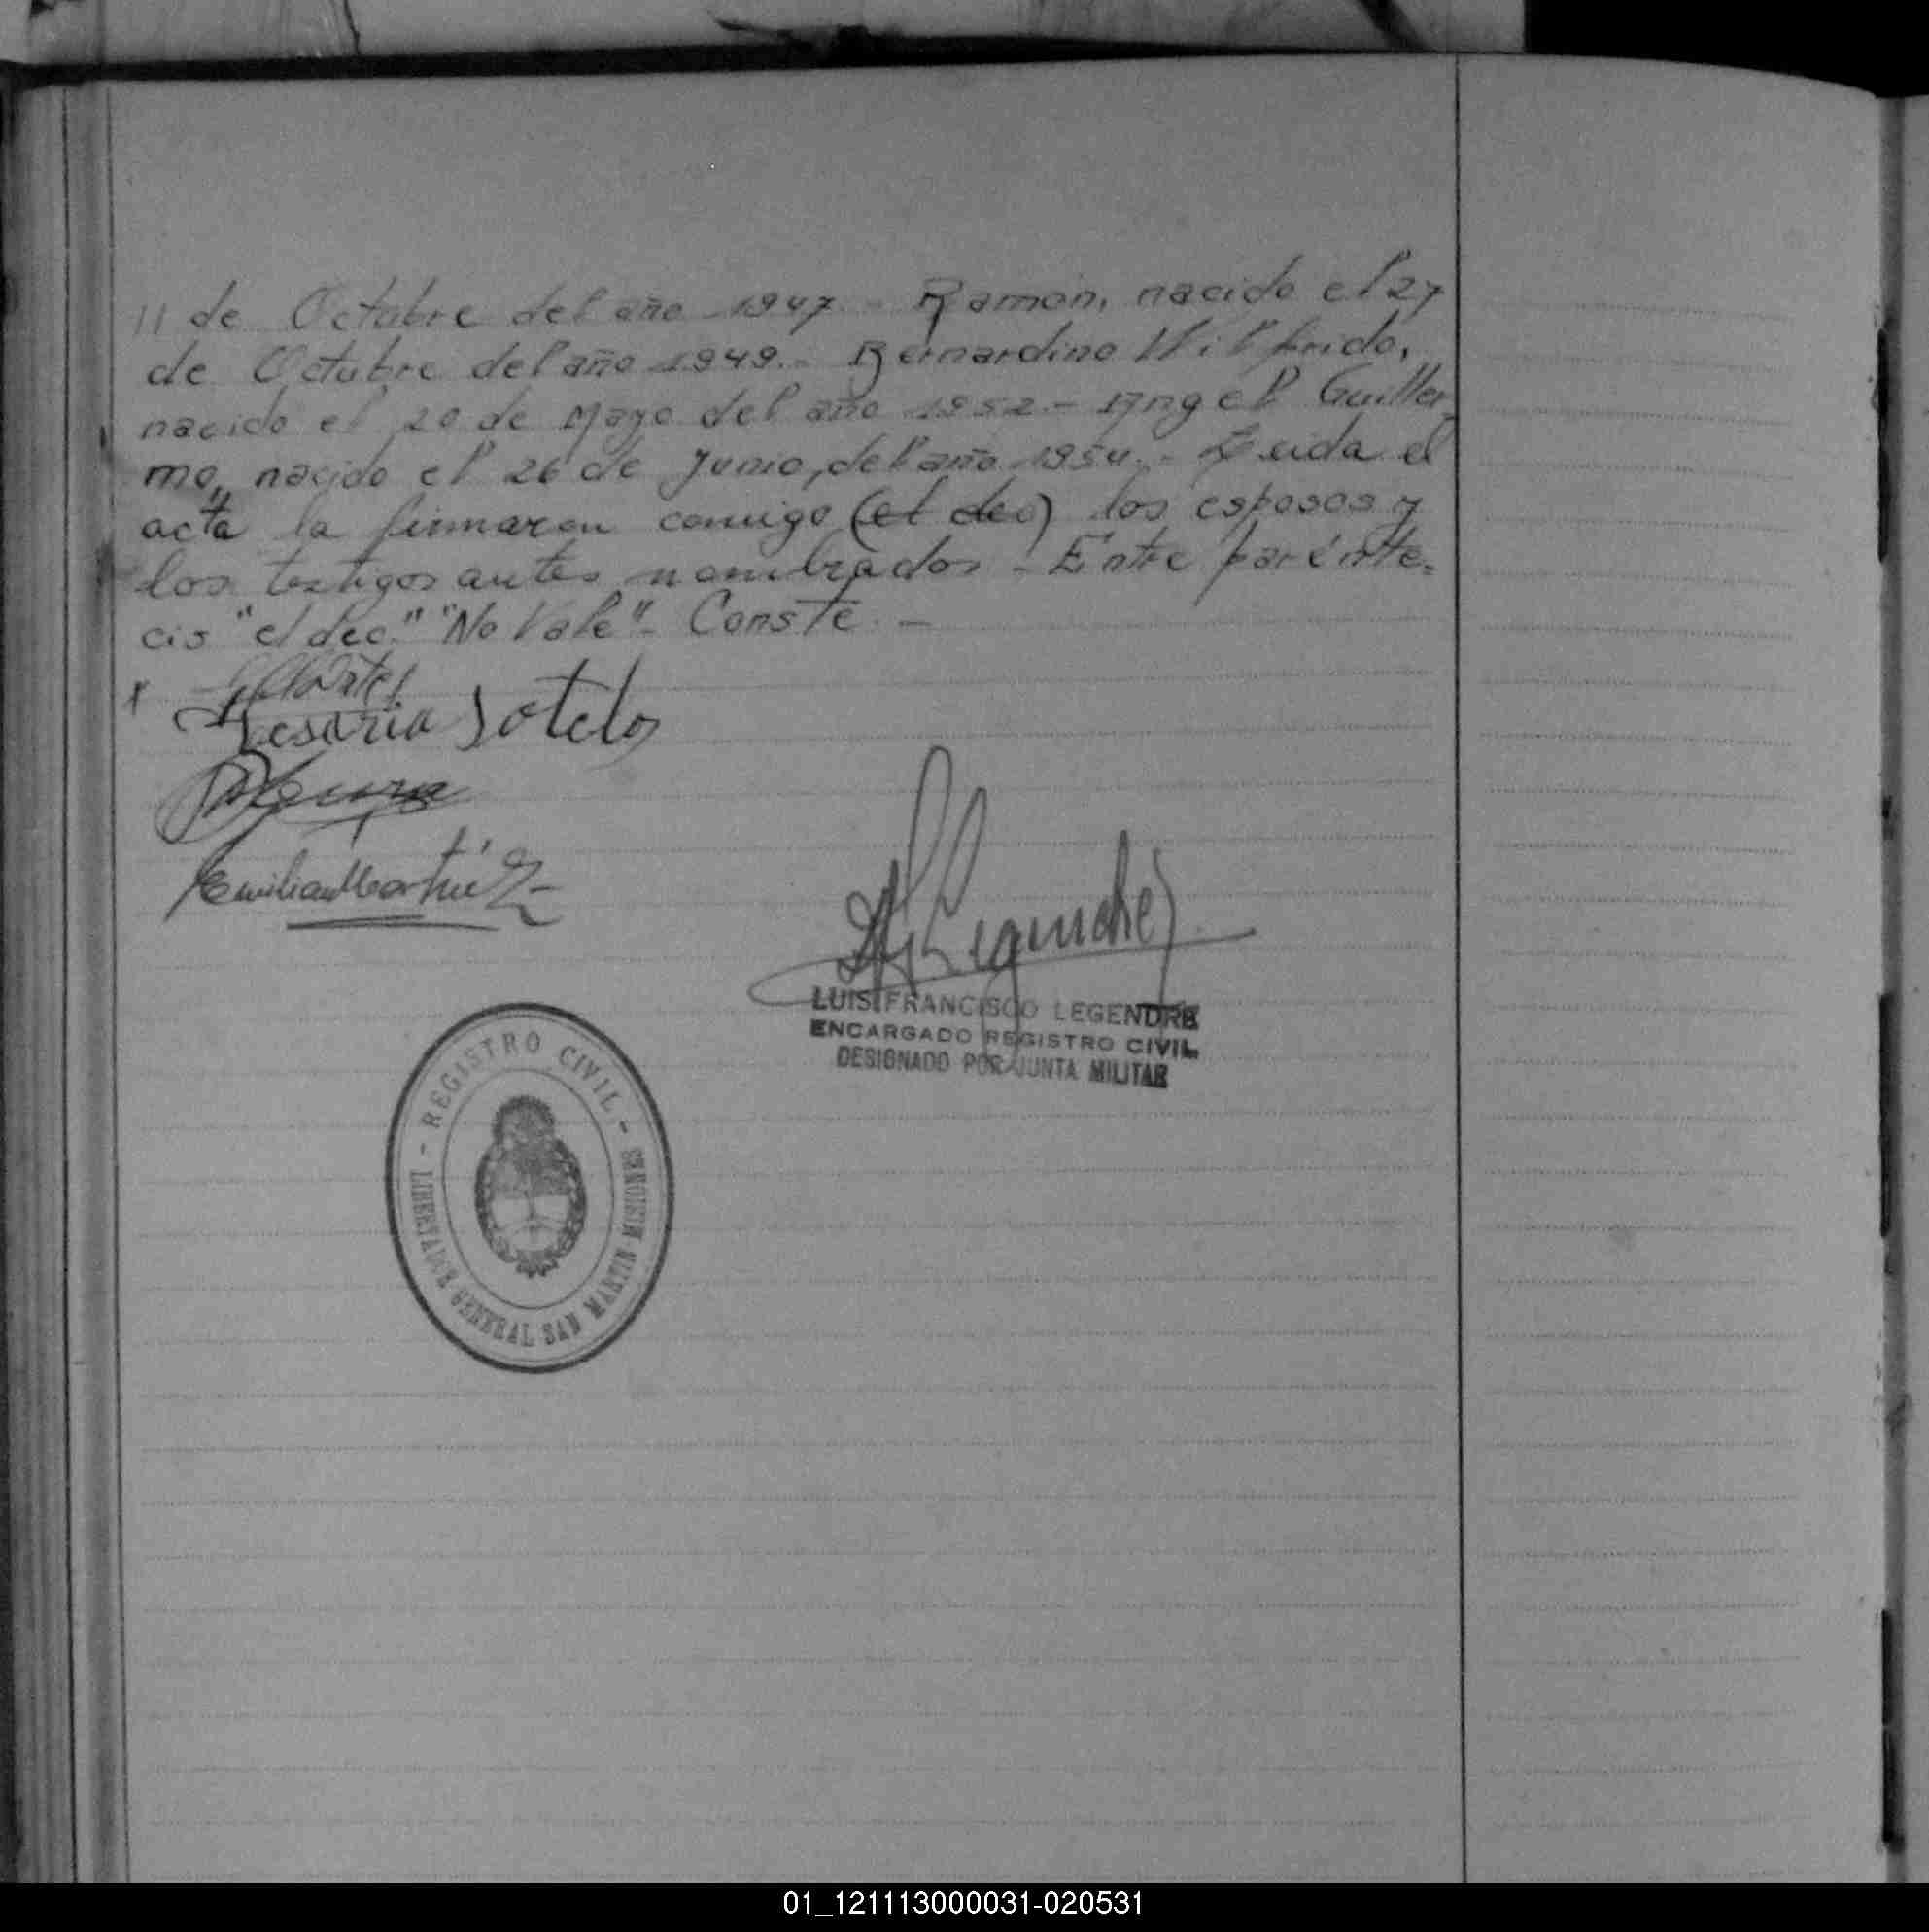 11 de Octubre del año 1947.- Ramón, nacido el 27
de Octubre del año 1949.- Bernardino Wilfrido,
nacido el 20 de Mayo del año 1952.- Angel Guiller
mo, nacido el 26 de Junio, del año 1954.- Leida el
acta la firmaron comigo (el dec) los esposos y
los testigos antes nombrados - Entre parénte=
cis "el dec." "No Vale"- Conste.-
x
Cesaria Sotelo
Emiliano Martínez
LUIS FRANCISCO LEGENDRE
ENCARGADO REGISTRO CIVIL
DESIGNADO POR JUNTA MILITAR
- REGISTRO CIVIL -
LIBERTADOR GENERAL SAN MARTIN MISIONES
01_121113000031-020531